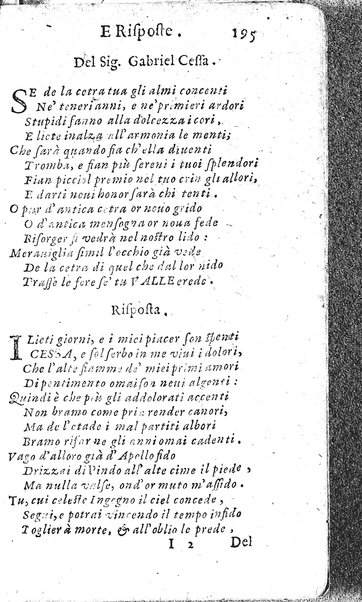 E Risposte. 195
Del Sig. Gabriel Cessa.
SE de la cetra tua gli almi concenti
Ne' teneri anni, e ne' primieri ardori
Stupidi fanno alla dolcezza i cori,
E liete inalza all'armonia le menti;
Che sarà quando fia ch'ella diventi
Tromba, e fian più sereni i tuoi splendori
Fian picciol premio nel tuo crin gli allori,
E darti novi honor sarà chi tenti.
O par d'antica cetra or novo grido
O d'antica mensogna or nova fede
Risorger si vedrà nel nostro lido:
Meraviglia simil l'occhio già vede
De la cetra di quel che dal lor nido
Trasse le fere se' tu VALLE erede.
Risposta.
I Lieti giorni, e i miei piacer son spenti
CESSA, e sol serbo in me vivi i dolori,
Che l'alte fiamme de' miei primi amori
Di pentimento omai son nevi algenti:
Quindi è che più gli addolorati accenti
Non bramo come pria render canori,
Ma de l'etade i mal partiti albori
Bramo rifar ne gli anni omai cadenti.
Vago d'alloro già d'Apollo fido
Drizzai di Pindo all'alte cime il piede,
Ma nulla valse, ond'or muto m'assido.
Tu, cui celeste Ingegno il ciel concede,
Segui, e potrai vincendo il tempo infido
Toglier à morte, & all'oblio le prede,
I 2 Del